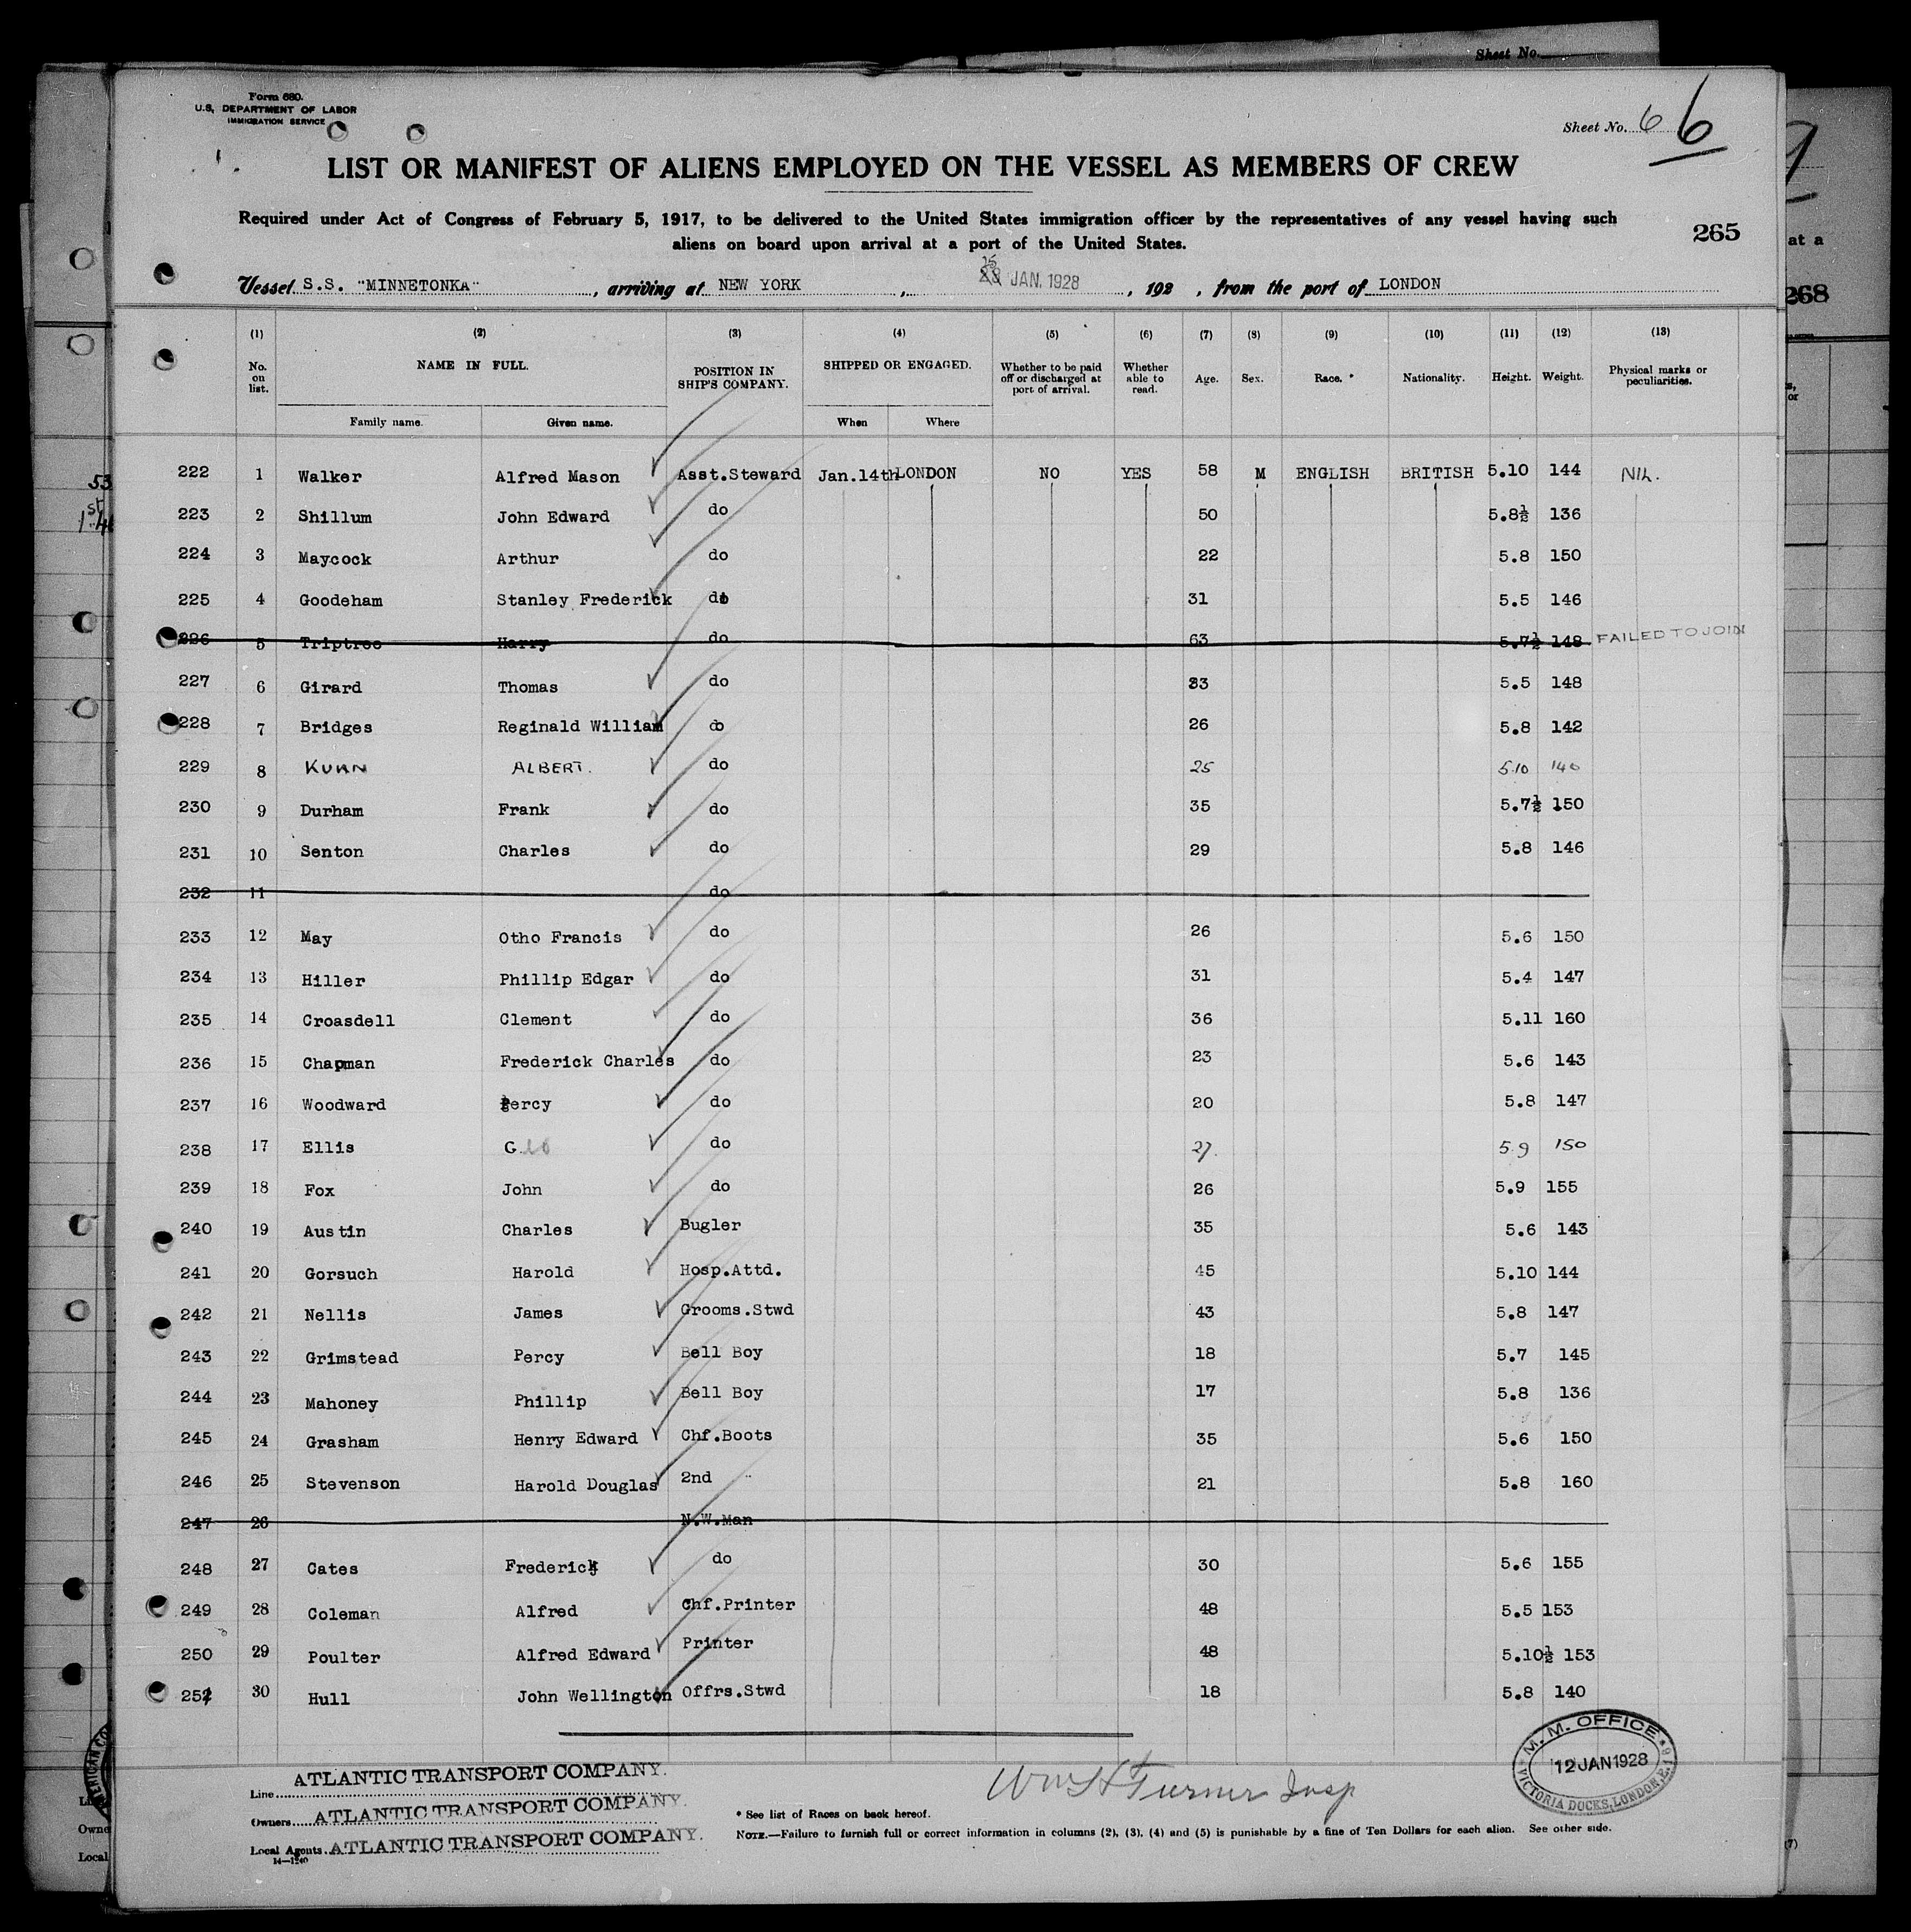 Sheet No.
Form 680.
U.S. DEPARTMENT OF LABOR
IMMIGRATION SERVICE
Sheet No. 6 6
LIST OR MANIFEST OF ALIENS EMPLOYED ON THE VESSEL AS MEMBERS OF CREW
Required under Act of Congress of February 5, 1917, to be delivered to the United States immigration officer by the representatives of any vessel having such
aliens on board upon arrival at a port of the United States.
265
at a
268
Vessel S.S. "MINNETONKA", arriving at NEW YORK, JAN. 1928, 192 , from the port of LONDON
(1) (2) (3) (4) (5) (6) (7) (8) (9) (10) (11) (12) (13)
No. on list. NAME IN FULL. POSITION IN SHIP'S COMPANY. SHIPPED OR ENGAGED. Whether to be paid off or discharged at port of arrival. Whether able to read. Age. Sex. Race.* Nationality. Height. Weight. Physical marks or peculiarities.
Family name. Given name. When Where
222 1 Walker Alfred Mason Asst.Steward Jan.14th LONDON NO YES 58 M ENGLISH BRITISH 5.10 144 NIL.
223 2 Shillum John Edward do 50 5.8½ 136
224 3 Maycock Arthur do 22 5.8 150
225 4 Goodeham Stanley Frederick do 31 5.5 146
226 5 Triptree Harry do 63 5.7½ 148 FAILED TO JOIN
227 6 Girard Thomas do 33 5.5 148
228 7 Bridges Reginald William do 26 5.8 142
229 8 KUHN ALBERT. do 25 5.10 140
230 9 Durham Frank do 35 5.7½ 150
231 10 Senton Charles do 29 5.8 146
232 11 do
233 12 May Otho Francis do 26 5.6 150
234 13 Hiller Phillip Edgar do 31 5.4 147
235 14 Croasdell Clement do 36 5.11 160
236 15 Chapman Frederick Charles do 23 5.6 143
237 16 Woodward Percy do 20 5.8 147
238 17 Ellis G. do 27. 5.9 150
239 18 Fox John do 26 5.9 155
240 19 Austin Charles Bugler 35 5.6 143
241 20 Gorsuch Harold Hosp.Attd. 45 5.10 144
242 21 Nellis James Grooms.Stwd 43 5.8 147
243 22 Grimstead Percy Bell Boy 18 5.7 145
244 23 Mahoney Phillip Bell Boy 17 5.8 136
245 24 Grasham Henry Edward Chf.Boots 35 5.6 150
246 25 Stevenson Harold Douglas 2nd " 21 5.8 160
247 26 N.W.Man
248 27 Cates Frederick do 30 5.6 155
249 28 Coleman Alfred Chf.Printer 48 5.5 153
250 29 Poulter Alfred Edward Printer 48 5.10½ 153
251 30 Hull John Wellington Offrs.Stwd 18 5.8 140
Line ATLANTIC TRANSPORT COMPANY.
Owners ATLANTIC TRANSPORT COMPANY.
Local Agents ATLANTIC TRANSPORT COMPANY.
14—1240
Wm H Turner Insp
* See list of Races on back hereof.
NOTE.—Failure to furnish full or correct information in columns (2), (3), (4) and (5) is punishable by a fine of Ten Dollars for each alien. See other side.
M. M. OFFICE
12 JAN 1928
VICTORIA DOCKS, LONDON E.